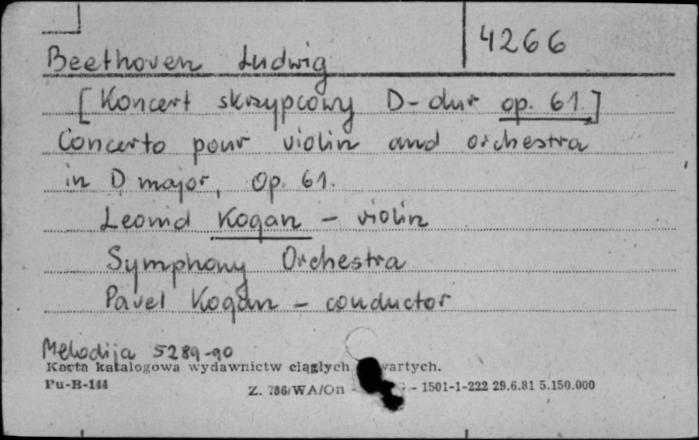 4266
Beethoven Ludwig
[Koncert skrzypcowy D-dur op. 61.]
Concerto pour violin and orchestra
in D major, Op. 61.
Leonid Kogan - violin
Symphony Orchestra
Pavel Kogan - conductor
Melodija 5289-90
Karta katalogowa wydawnictw ciągłych wartych.
Pu-B-144
Z. 786/WA/On - - 1501-1-222 29.6.81 5.150.000